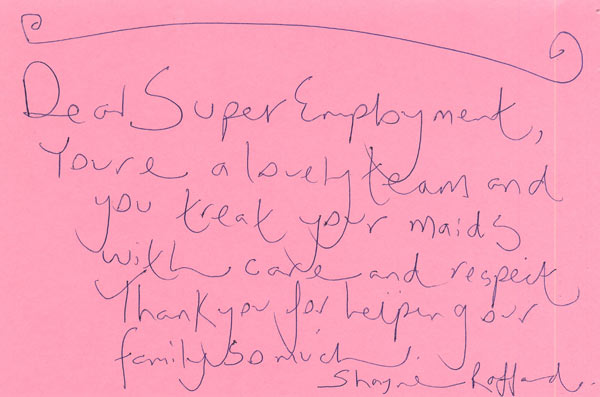 Dear Super Employment,
Youre a lovely team and
you treat your maids
with care and respect.
Thankyou for helping our
family so much.
Shayne Rafford.